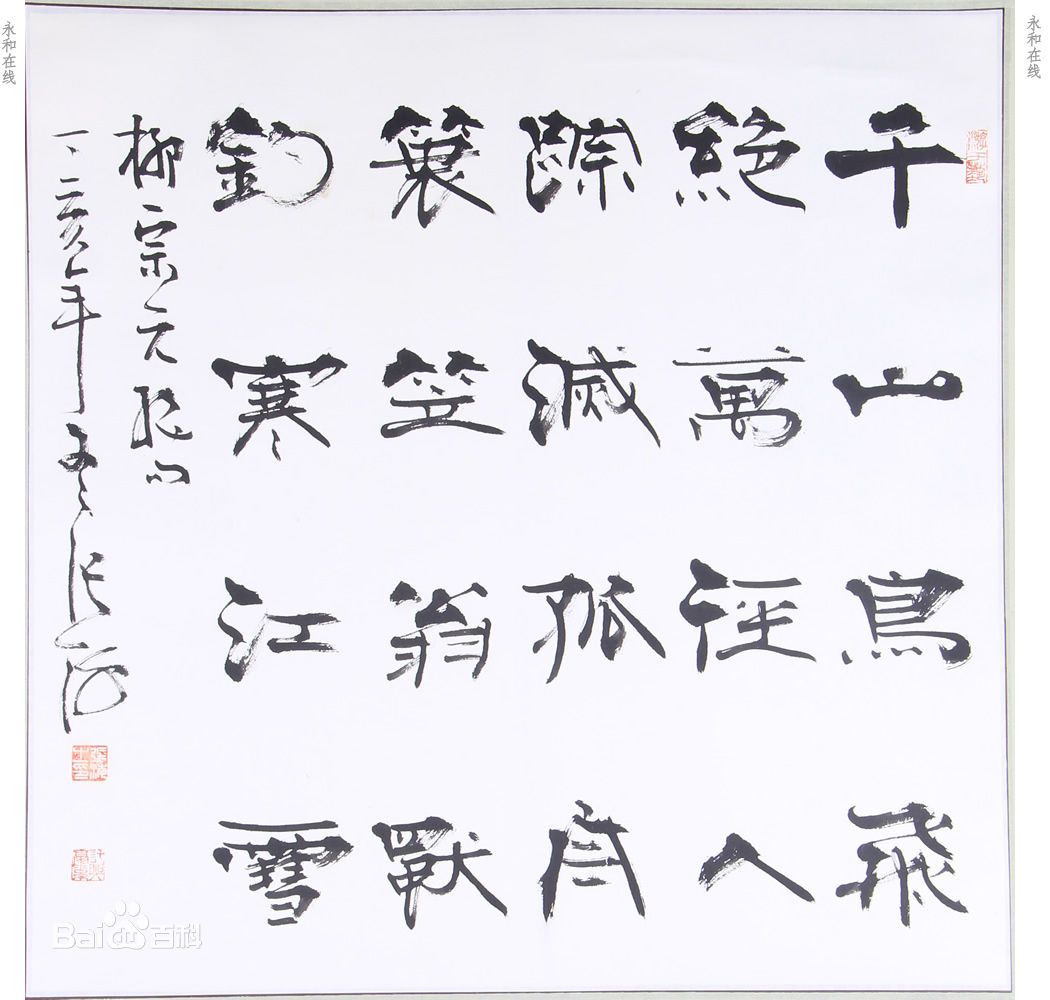 永和在线
永和在线
千山鳥飛
絶萬徑人
踪滅孤舟
蓑笠翁獨
釣寒江雪
柳宗元
年
Bai百科